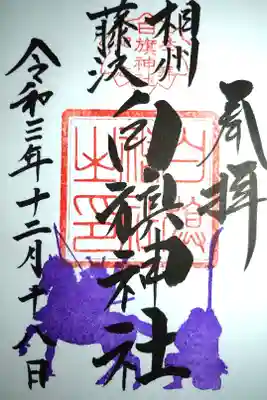 奉拝
相州
藤沢
白旗神社
白旗神社
令和三年十二月十八日